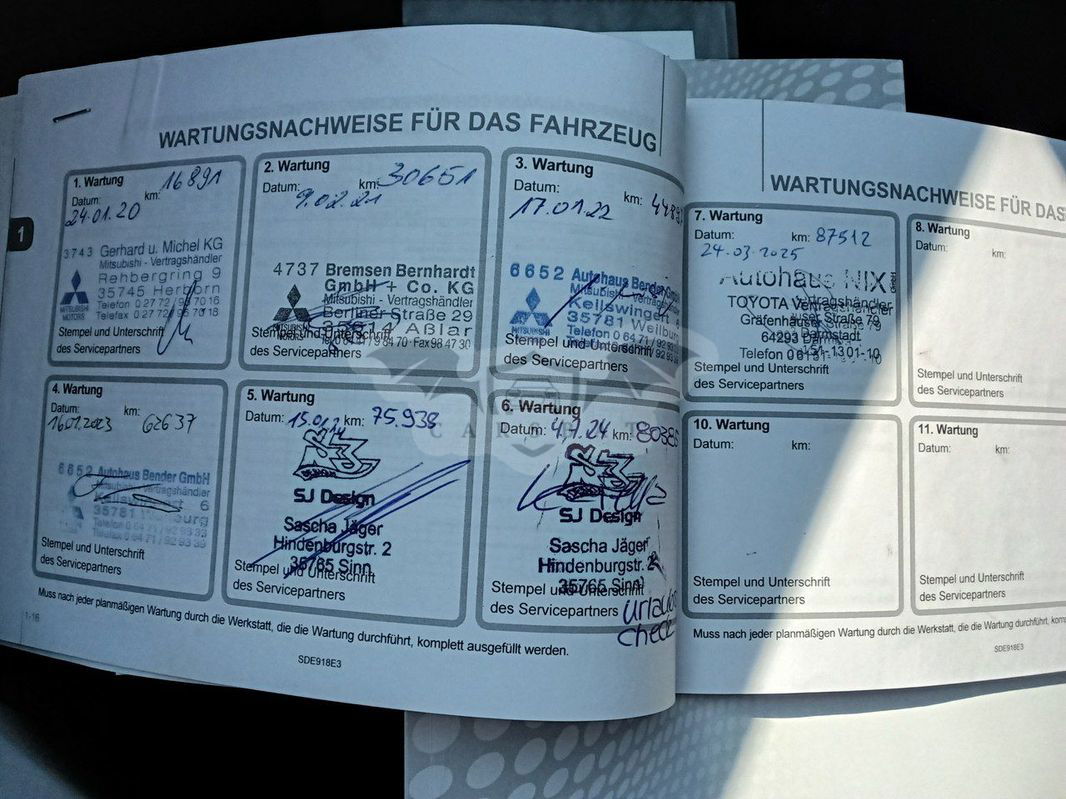 WARTUNGSNACHWEISE FÜR DAS FAHRZEUG
1
1. Wartung
km: 16891
Datum:
24.01.20
3743 Gerhard u. Michel KG
Mitsubishi - Vertragshändler
Rehbergring 9
35745 Herborn
MITSUBISHI MOTORS
Telefon 0 27 72 /
Telefax 0 27 72 /
Stempel und Unterschrift
des Servicepartners
2. Wartung
Datum: km: 30651
9.02.21
4737 Bremsen Bernhardt
GmbH + Co. KG
Mitsubishi - Vertragshändler
Berliner Straße 29
Aßlar
MITSUBISHI MOTORS
Stempel und Unterschrift
des Servicepartners
3. Wartung
Datum: km:
17.01.22
6652 Autohaus Bender GmbH
35781
MITSUBISHI MOTORS
Telefon 0 64 71 /
Stempel und Unterschrift
des Servicepartners
4. Wartung
Datum: km:
16.01.2023 62637
6652 Autohaus Bender GmbH
Mitsubishi - Vertragshändler
6
35781
Telefon 0 64 71 / 92 93 33
Telefax 0 64 71 / 92 93 39
Stempel und Unterschrift
des Servicepartners
5. Wartung
Datum: km: 75.938
SJ Design
Sascha Jäger
Hindenburgstr. 2
Sinn
Stempel und Unterschrift
des Servicepartners
6. Wartung
Datum: 4.7.24 km:
SJ Design
Sascha Jäger
Hindenburgstr. 2
Sinn
Stempel und Unterschrift
des Servicepartners
Urlaubs
check
Muss nach jeder planmäßigen Wartung durch die Werkstatt, die die Wartung durchführt, komplett ausgefüllt werden.
1-16
SDE918E3
WARTUNGSNACHWEISE FÜR DAS
7. Wartung
Datum: km: 87512
24.03.2025
Autohaus NIX GmbH
TOYOTA Vertragshändler
64293 Darmstadt
Telefon
Stempel und Unterschrift
des Servicepartners
8. Wartung
Datum: km:
Stempel und Unterschrift
des Servicepartners
10. Wartung
Datum: km:
Stempel und Unterschrift
des Servicepartners
11. Wartung
Datum: km:
Stempel und Unterschrift
des Servicepartners
Muss nach jeder planmäßigen Wartung durch die Werkstatt, die die Wartung durchführt,
SDE918E3